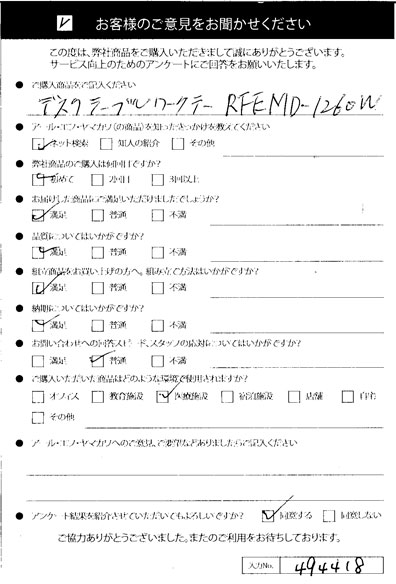 お客様のご意見をお聞かせください
この度は、弊社商品をご購入いただきまして誠にありがとうございます。
サービス向上のためのアンケートにご回答をお願いいたします。
● ご購入商品をご記入ください
デスクテーブルワークテー RFEMD-1260W
● アール・エフ・ヤマカワ(の商品)を知ったきっかけを教えてください
ネット検索 知人の紹介 その他
● 弊社商品のご購入は何回目ですか?
初めて 2回目 3回以上
● お届けした商品にご満足いただけましたでしょうか?
満足 普通 不満
● 品質についてはいかがですか?
満足 普通 不満
● 組立商品をお買い上げの方へ。組み立て方法はいかがですか?
満足 普通 不満
● 納期についてはいかがですか?
満足 普通 不満
● お問い合わせへの回答スピード、スタッフの応対についてはいかがですか?
満足 普通 不満
● ご購入いただいた商品はどのような環境で使用されますか?
オフィス 教育施設 医療施設 宿泊施設 店舗 自宅
その他
● アール・エフ・ヤマカワへのご意見、ご要望などありましたらご記入ください
● アンケート結果を紹介させていただいてもよろしいですか? 同意する 同意しない
ご協力ありがとうございました。またのご利用をお待ちしております。
入力No. 494418